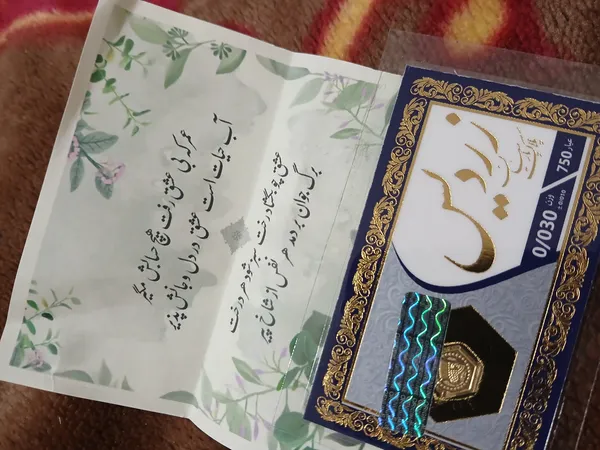 عمر که بی عشق رفت هیچ حسابش مگیر
آب حیات است عشق در دل و جانش پذیر
عشق چو بگشاد رخت سبز شود هر درخت
برگ جوان بردمد هر نفس از شاخ پیر
زردیس
عیار 750
وزن 0/030
± 0/010